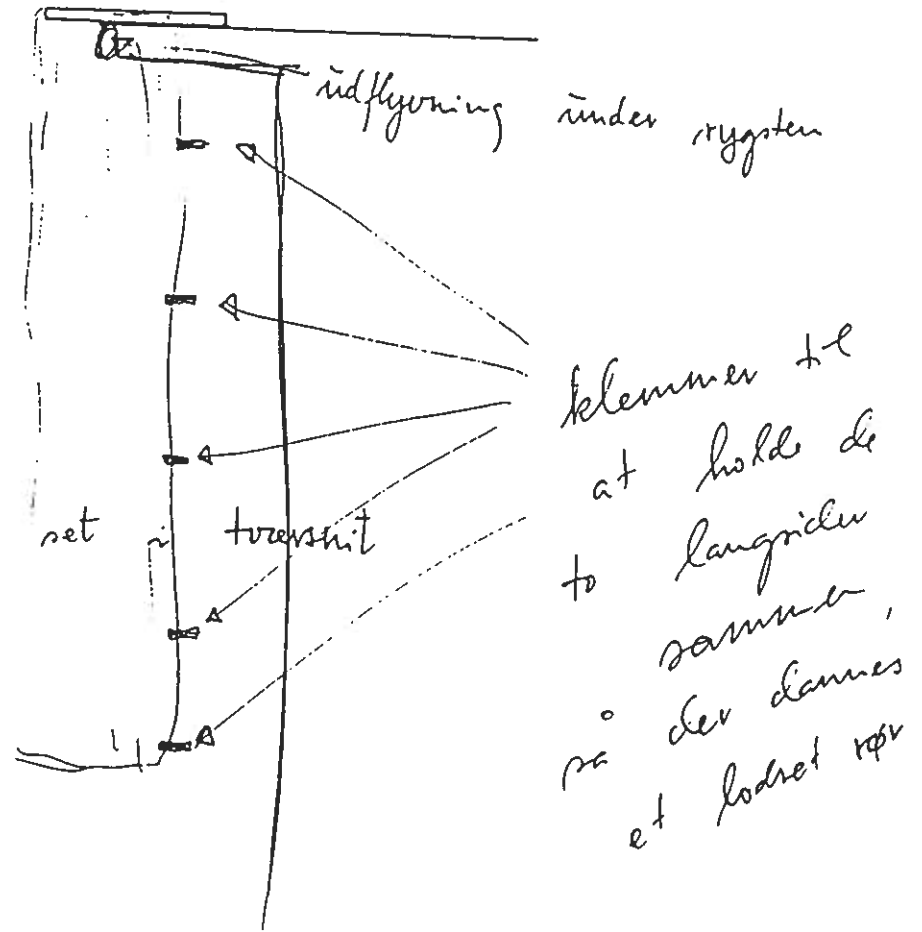 udflyvning under rygsten
klemmer til
at holde de
to langsider
sammen,
så der dannes
et lodret rør
set i tværsnit